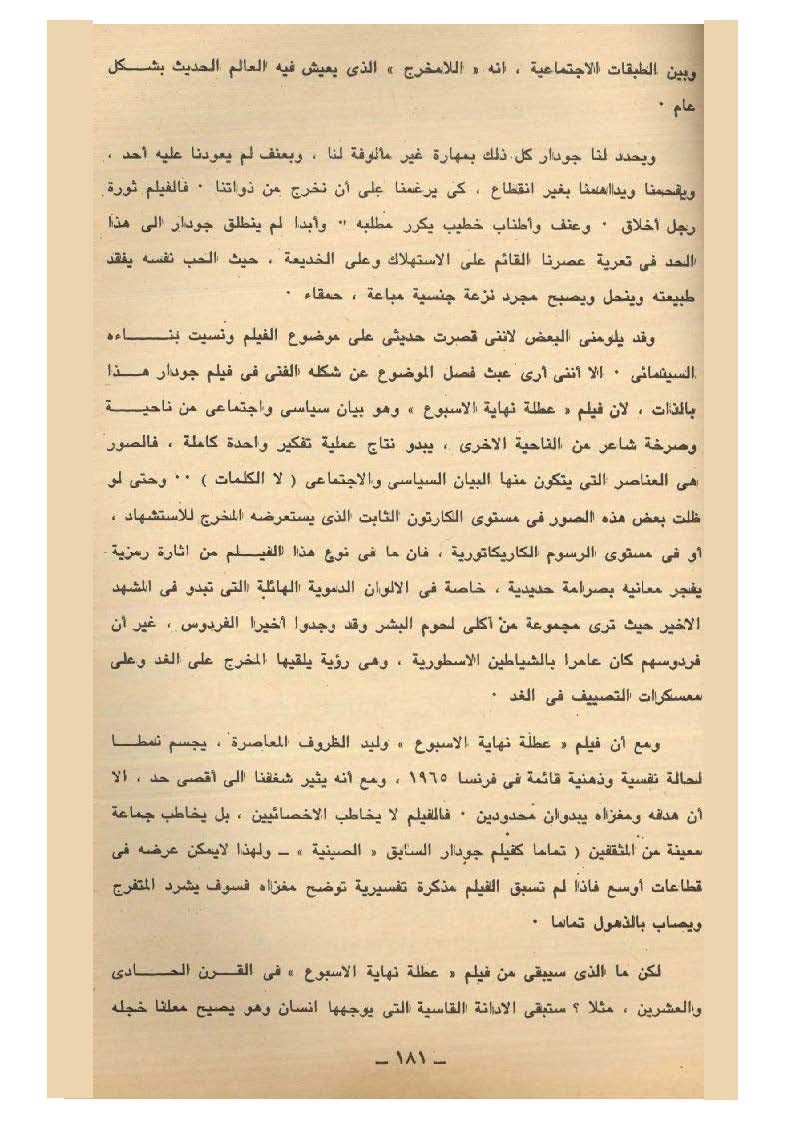 وبين الطبقات الاجتماعية ، انه « اللامخرج » الذى يعيش فيه العالم الحديث بشـــكل
عام ٠
ويحدد لنا جودار كل ذلك بمهارة غير مألوفة لنا ، وبعنف لم يعودنا عليه أحد ،
ويقحمنا ويداهمنا بغير انقطاع ، كى يرغمنا على أن نخرج من ذواتنا ٠ فالفيلم ثورة
رجل أخلاق ٠ وعنف وأطناب خطيب يكرر مطلبه ٠٠ وأبدا لم ينطلق جودار الى هذا
الحد فى تعرية عصرنا القائم على الاستهلاك وعلى الخديعة ، حيث الحب نفسه يفقد
طبيعته وينحل ويصبح مجرد نزعة جنسية مباعة ، حمقاء ٠
وقد يلومنى البعض لاننى قصرت حديثى على موضوع الفيلم ونسيت بنـــــاءه
السينمائى ٠ الا أننى أرى عبث فصل الموضوع عن شكله الفنى فى فيلم جودار هـــذا
بالذات ، لان فيلم « عطلة نهاية الاسبوع » وهو بيان سياسى واجتماعى من ناحيـــة
وصرخة شاعر من الناحية الاخرى ، يبدو نتاج عملية تفكير واحدة كاملة ، فالصور
هى العناصر التى يتكون منها البيان السياسى والاجتماعى ( لا الكلمات ) ٠٠ وحتى لو
ظلت بعض هذه الصور فى مستوى الكارتون الثابت الذى يستعرضه المخرج للاستشهاد ،
أو فى مستوى الرسوم الكاريكاتورية ، فان ما فى نوع هذا الفيـــلم من اثارة رمزية
يفجر معانيه بصرامة حديدية ، خاصة فى الالوان الدموية الهائلة التى تبدو فى المشهد
الاخير حيث ترى مجموعة من أكلى لحوم البشر وقد وجدوا أخيرا الفردوس ، غير أن
فردوسهم كان عامرا بالشياطين الاسطورية ، وهى رؤية يلقيها المخرج على الغد وعلى
معسكرات التصييف فى الغد ٠
ومع أن فيلم « عطلة نهاية الاسبوع » وليد الظروف المعاصرة ، يجسم نمطـــا
لحالة نفسية وذهنية قائمة فى فرنسا ١٩٦٥ ، ومع أنه يثير شغفنا الى أقصى حد ، الا
أن هدفه ومغزاه يبدوان محدودين ٠ فالفيلم لا يخاطب الاخصائيين ، بل يخاطب جماعة
معينة من المثقفين ( تماما كفيلم جودار السابق « الصينية » ــ ولهذا لايمكن عرضه فى
قطاعات أوسع فاذا لم تسبق الفيلم مذكرة تفسيرية توضح مغزاه فسوف يشرد المتفرج
ويصاب بالذهول تماما ٠
لكن ما الذى سيبقى من فيلم « عطلة نهاية الاسبوع » فى القـــرن الحـــادى
والعشرين ، مثلا ؟ ستبقى الادانة القاسية التى يوجهها انسان وهو يصيح معلنا خجله
ــ ١٨١ ــ